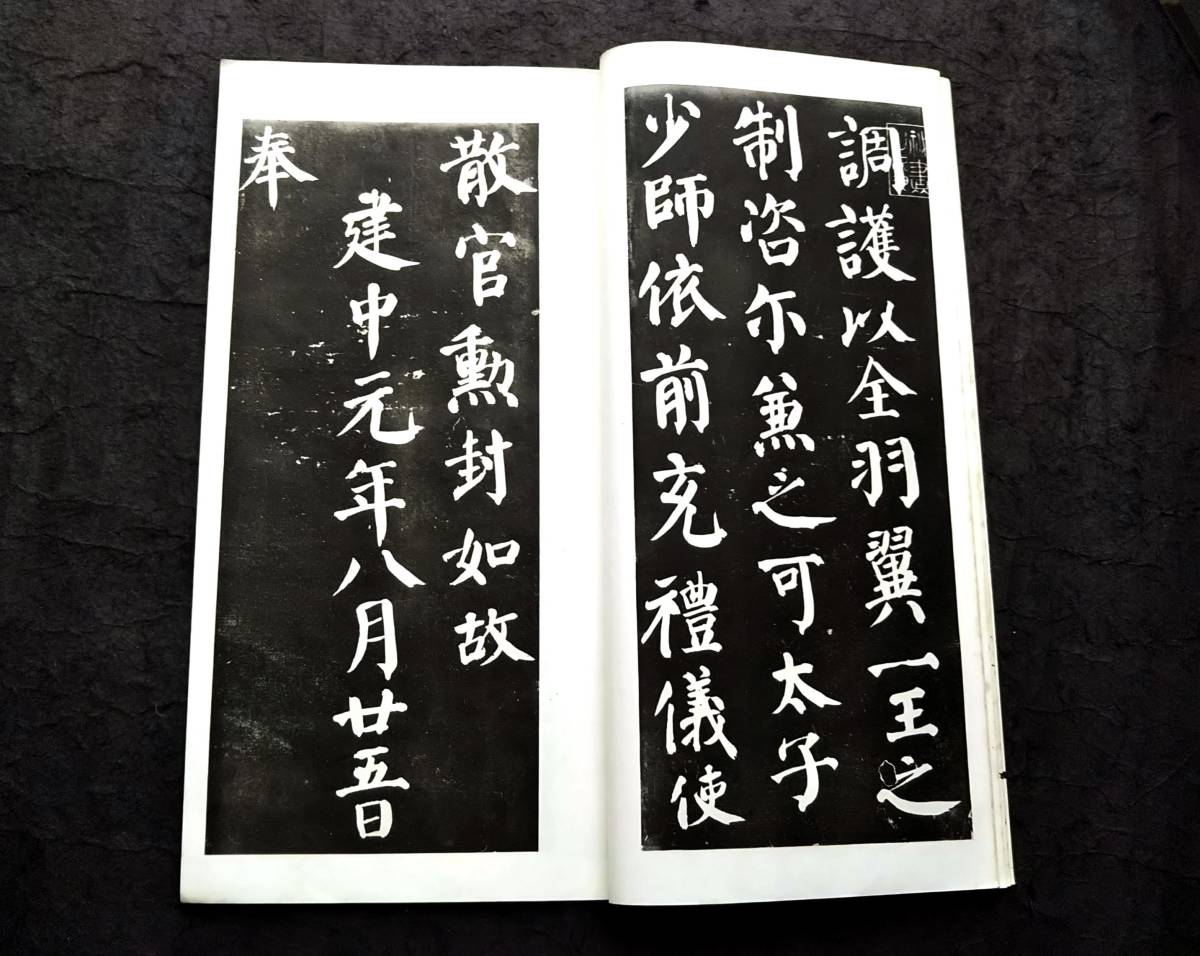 調護以全羽翼一王之
制咨尓兼之可太子
少師依前充禮儀使
散官勳封如故
建中元年八月廿五日
奉